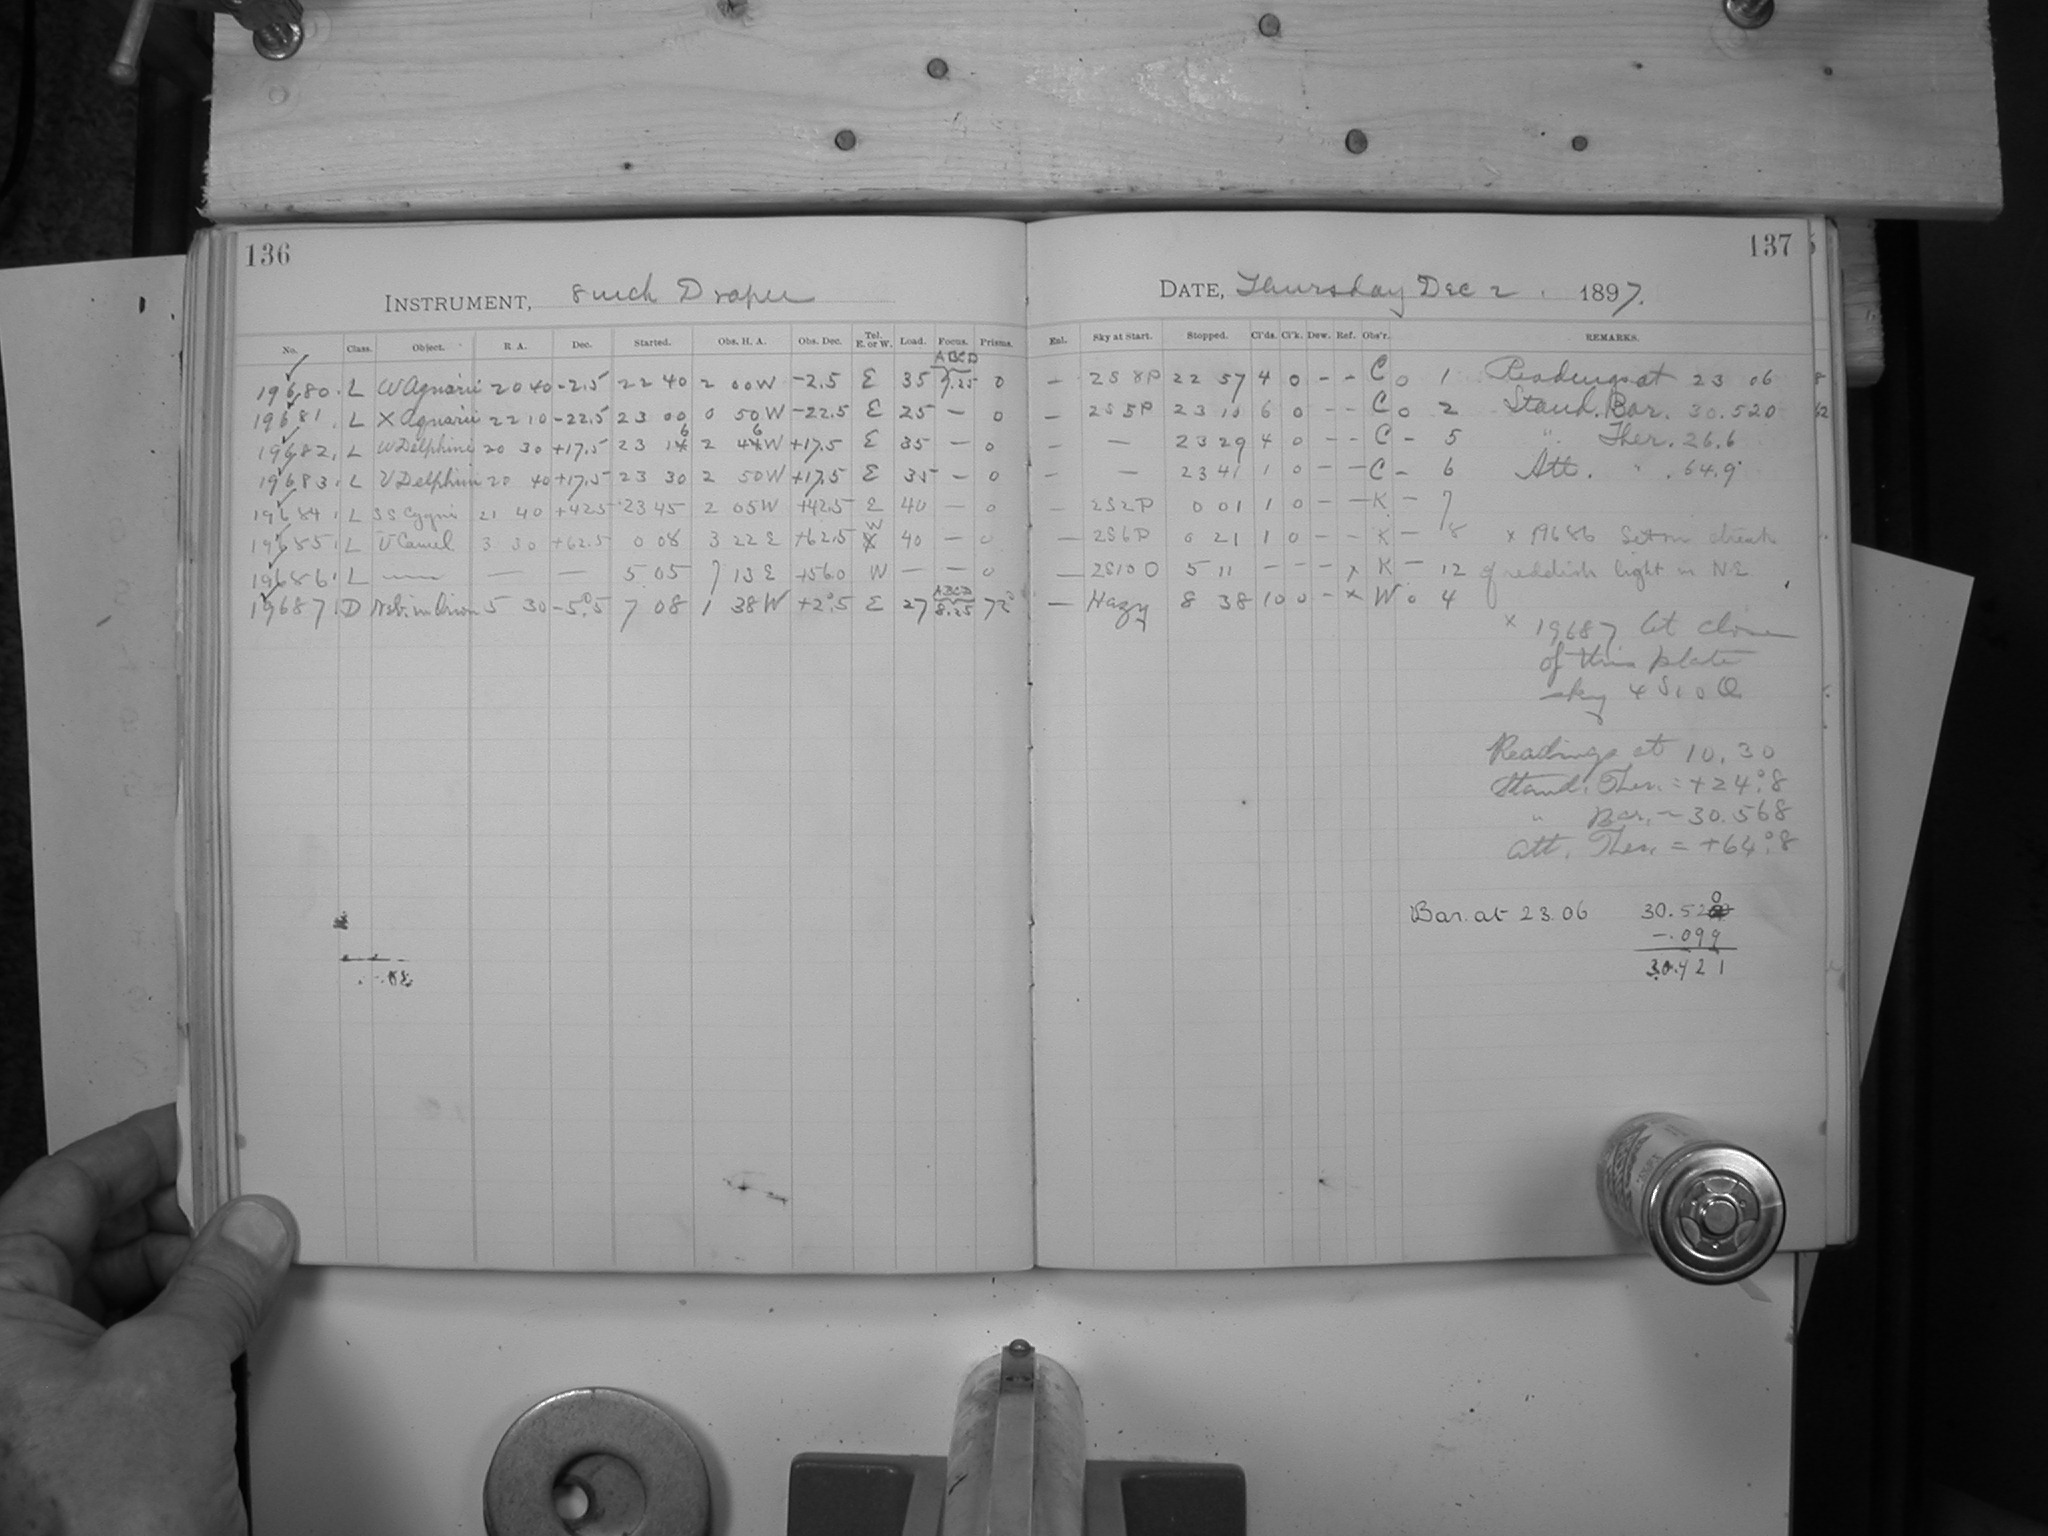 136
137
INSTRUMENT, 8 inch Draper
DATE, Thursday Dec 2. 1897.
No. Class. Object. R. A. Dec. Started. Obs. H. A. Obs. Dec. Tel. E. or W. Load. Focus. Prisms.
Enl. Sky at Start. Stopped. Cl'ds. Cl'k. Dew. Ref. Obs'r. REMARKS.
19680. L W Aquarii 20 40 -2.5 22 40 2 00W -2.5 E 35 ABCD 9.25 0 — 2S8P 22 57 4 0 - - C 0 1 Readings at 23 06
19681. L X Aquarii 22 10 -22.5 23 00 0 50W -22.5 E 25 — 0 — 2S5P 23 10 6 0 - - C 0 2 Stand. Bar. 30.520
19682. L W Delphini 20 30 +17.5 23 16 2 46W +17.5 E 35 — 0 — — 23 29 4 0 - - C - 5 " Ther. 26.6
19683. L V Delphini 20 40 +17.5 23 30 2 50W +17.5 E 35 — 0 — — 23 41 1 0 - - C - 6 Att. " . 64.9
19684. L SS Cygni 21 40 +42.5 23 45 2 05W +42.5 E 40 — 0 — 2S2P 0 01 1 0 - - K - 7
19685. L U Camel 3 30 +62.5 0 08 3 22E +62.5 W 40 — 0 — 2S6P 0 21 1 0 - - K - 8 x 19686 Set on streak
19686. L — — — 5 05 7 13E +56.0 W — — 0 — 2S10 0 5 11 - - - x K - 12 of reddish light in N.E.
19687. D Neb. in Orion 5 30 -5°.5 7 08 1 38W +2°.5 E 27 ABCD 8.25 72° — Hazy 8 38 10 0 - x W 0 4
x 19687 At close
of this plate
sky 4S10Q
Readings at 10.30
Stand. Ther. = +24°.8
" Bar. = 30.568
Att. Ther. = +64°.8
Bar. at 23.06 30.520
-.099
30.421